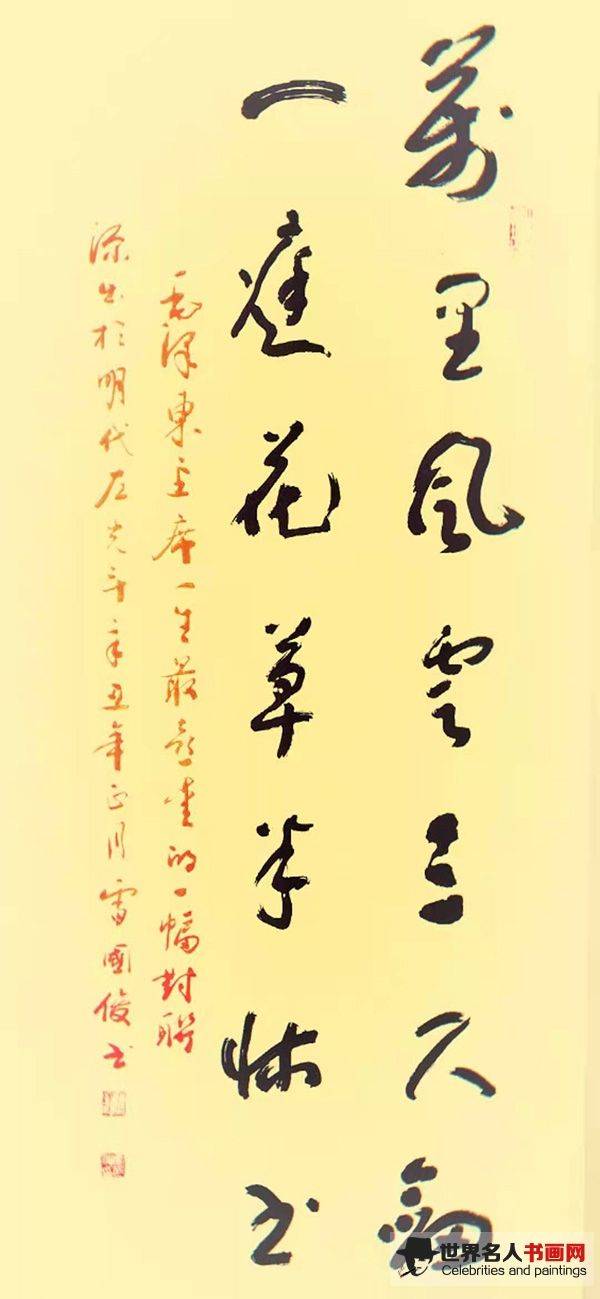 萬里風雲三尺劍
一庭花草半牀書
毛澤東主席一生最喜愛的一幅對聯
源出於明代左光斗辛丑年正月雷國俊書
世界名人书画网
Celebrities and paintings